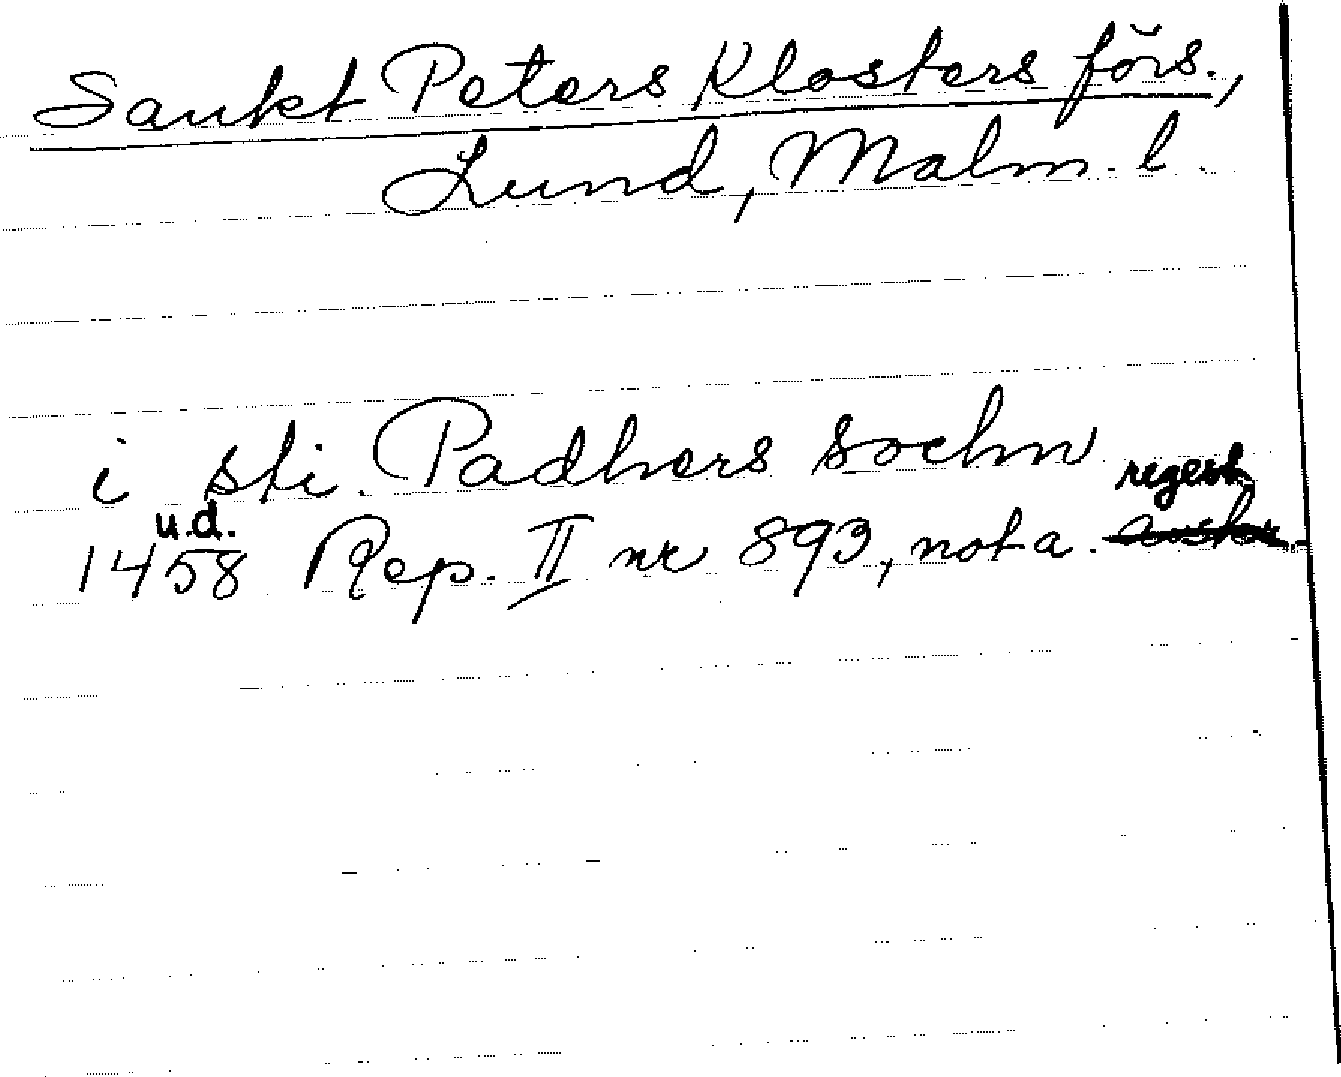 Sankt Peters Klosters förs.,
Lund, Malm. l.
i sti. Padhers sochn
u.d. regest
1458 Rep. II nr 893, nota.